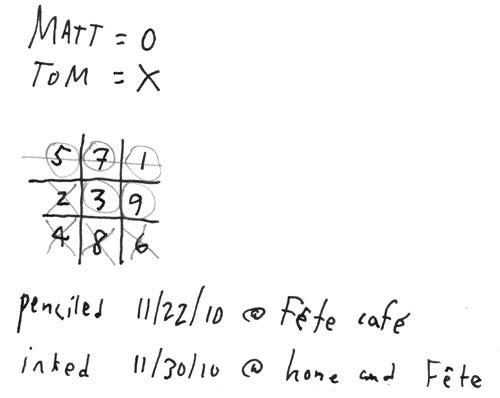 MATT = O
TOM = X
5 7 1
2 3 9
4 8 6
penciled 11/22/10 @ Fête café
inked 11/30/10 @ home and Fête